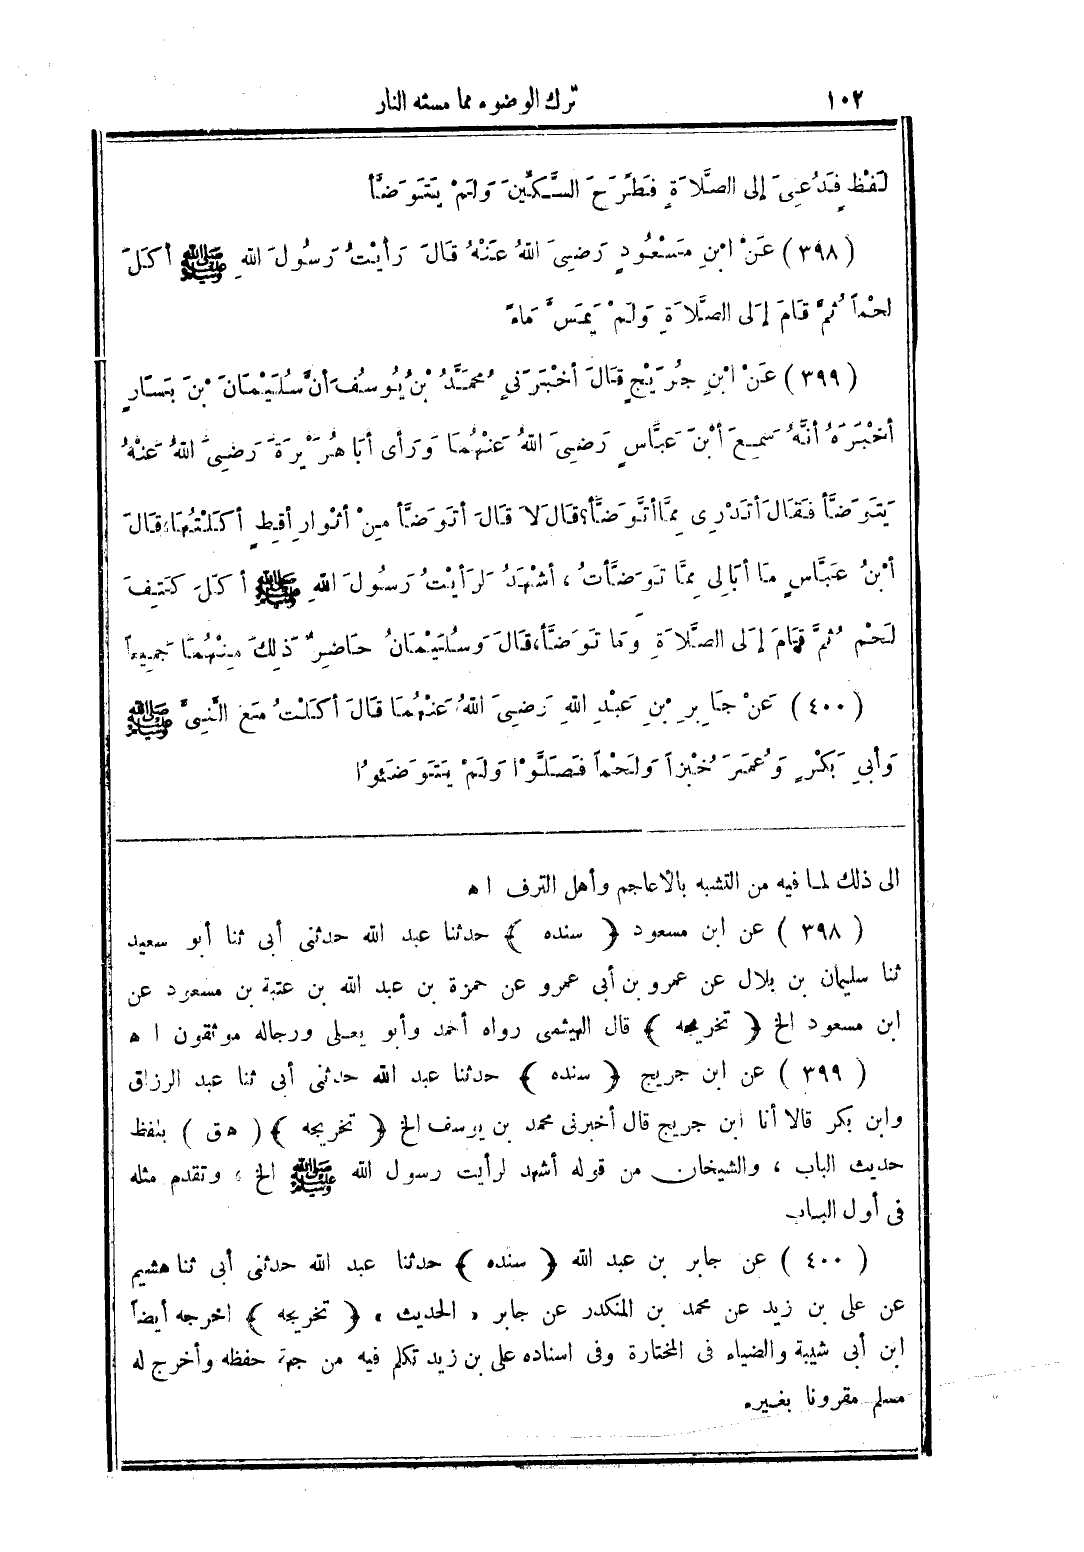 ١٠٢ ترك الوضوء مما مسته النار
لَفْظٍ فَدُعِيَ إلى الصَّلَاةِ فَطَرَحَ السِّكِّينَ وَلَمْ يَتَوَضَّأْ
(٣٩٨) عَنْ ابْنِ مَسْعُودٍ رَضِيَ اللهُ عَنْهُ قَالَ رَأَيْتُ رَسُولَ اللهِ ﷺ أكَلَ
لحْماً ثُمَّ قَامَ إِلَى الصَّلاَةِ وَلَمْ يَمَسَّ مَاءً
(٣٩٩) عَنْ ابْنِ جُرَيْجٍ قَالَ أخْبَرَنِي مُحَمَّدُ بْنُ يُوسُفَ أنَّ سُلَيْمَانَ بْنَ يَسَارٍ
أخْبَرَهُ أنَّهُ سَمِعَ أبْنَ عَبَّاسٍ رَضِيَ اللهُ عَنْهُمَا وَرَأى أبَا هُرَيْرَةَ رَضِيَ اللهُ عَنْهُ
يَتَوَضَّأُ فَقَالَ أتَدْرِي مِمَّا أتَوَضَّأُ؟ قَالَ لاَ قَالَ أتَوَضَّأُ مِنْ أثْوَارِ أقِطٍ أكَلْتُهَا، قَالَ
أبْنُ عَبَّاسٍ مَا أبَالِي مِمَّا تَوَضَّأتُ، أشْهَدُ لَرَأيْتُ رَسُولَ اللهِ ﷺ أكَلَ كَتِفَ
لَحْمٍ ثُمَّ قَامَ إِلَى الصَّلاَةِ وَمَا تَوَضَّأ، قَالَ وَسُلَيْمَانُ حَاضِرٌ ذَلِكَ مِنْهُمَا جَمِيعاً
(٤٠٠) عَنْ جَابِرِ بْنِ عَبْدِ اللهِ رَضِيَ اللهُ عَنْهُمَا قَالَ أكَلْتُ مَعَ النَّبِيِّ ﷺ
وَأبِي بَكْرٍ وَعُمَرَ خُبْزاً وَلَحْماً فَصَلَّوْا وَلَمْ يَتَوَضَّئُوا
الى ذلك لما فيه من التشبه بالأعاجم وأهل الترف ا ه
(٣٩٨) عن ابن مسعود ﴿ سنده ﴾ حدثنا عبد الله حدثنى أبى ثنا أبو سعيد
ثنا سليمان بن بلال عن عمرو بن أبى عمرو عن حمزة بن عبد الله بن عتبة بن مسعود عن
ابن مسعود الخ ﴿ تخريجه ﴾ قال الهيثمى رواه أحمد وأبو يعلى ورجاله موثقون ا ه
(٣٩٩) عن ابن جريج ﴿ سنده ﴾ حدثنا عبد الله حدثنى أبى ثنا عبد الرزاق
وابن بكر قالا أنا ابن جريج قال أخبرنى محمد بن يوسف الخ ﴿ تخريجه ﴾ (هق) بلفظ
حديث الباب، والشيخان من قوله أشهد لرأيت رسول الله ﷺ الخ، وتقدم مثله
فى أول الباب
(٤٠٠) عن جابر بن عبد الله ﴿ سنده ﴾ حدثنا عبد الله حدثنى أبى ثنا هشيم
عن على بن زيد عن محمد بن المنكدر عن جابر «الحديث» ﴿ تخريجه ﴾ اخرجه أيضاً
ابن أبى شيبة والضياء فى المختارة وفى اسناده على بن زيد تكلم فيه من جهة حفظه وأخرج له
مسلم مقرونا بغيره